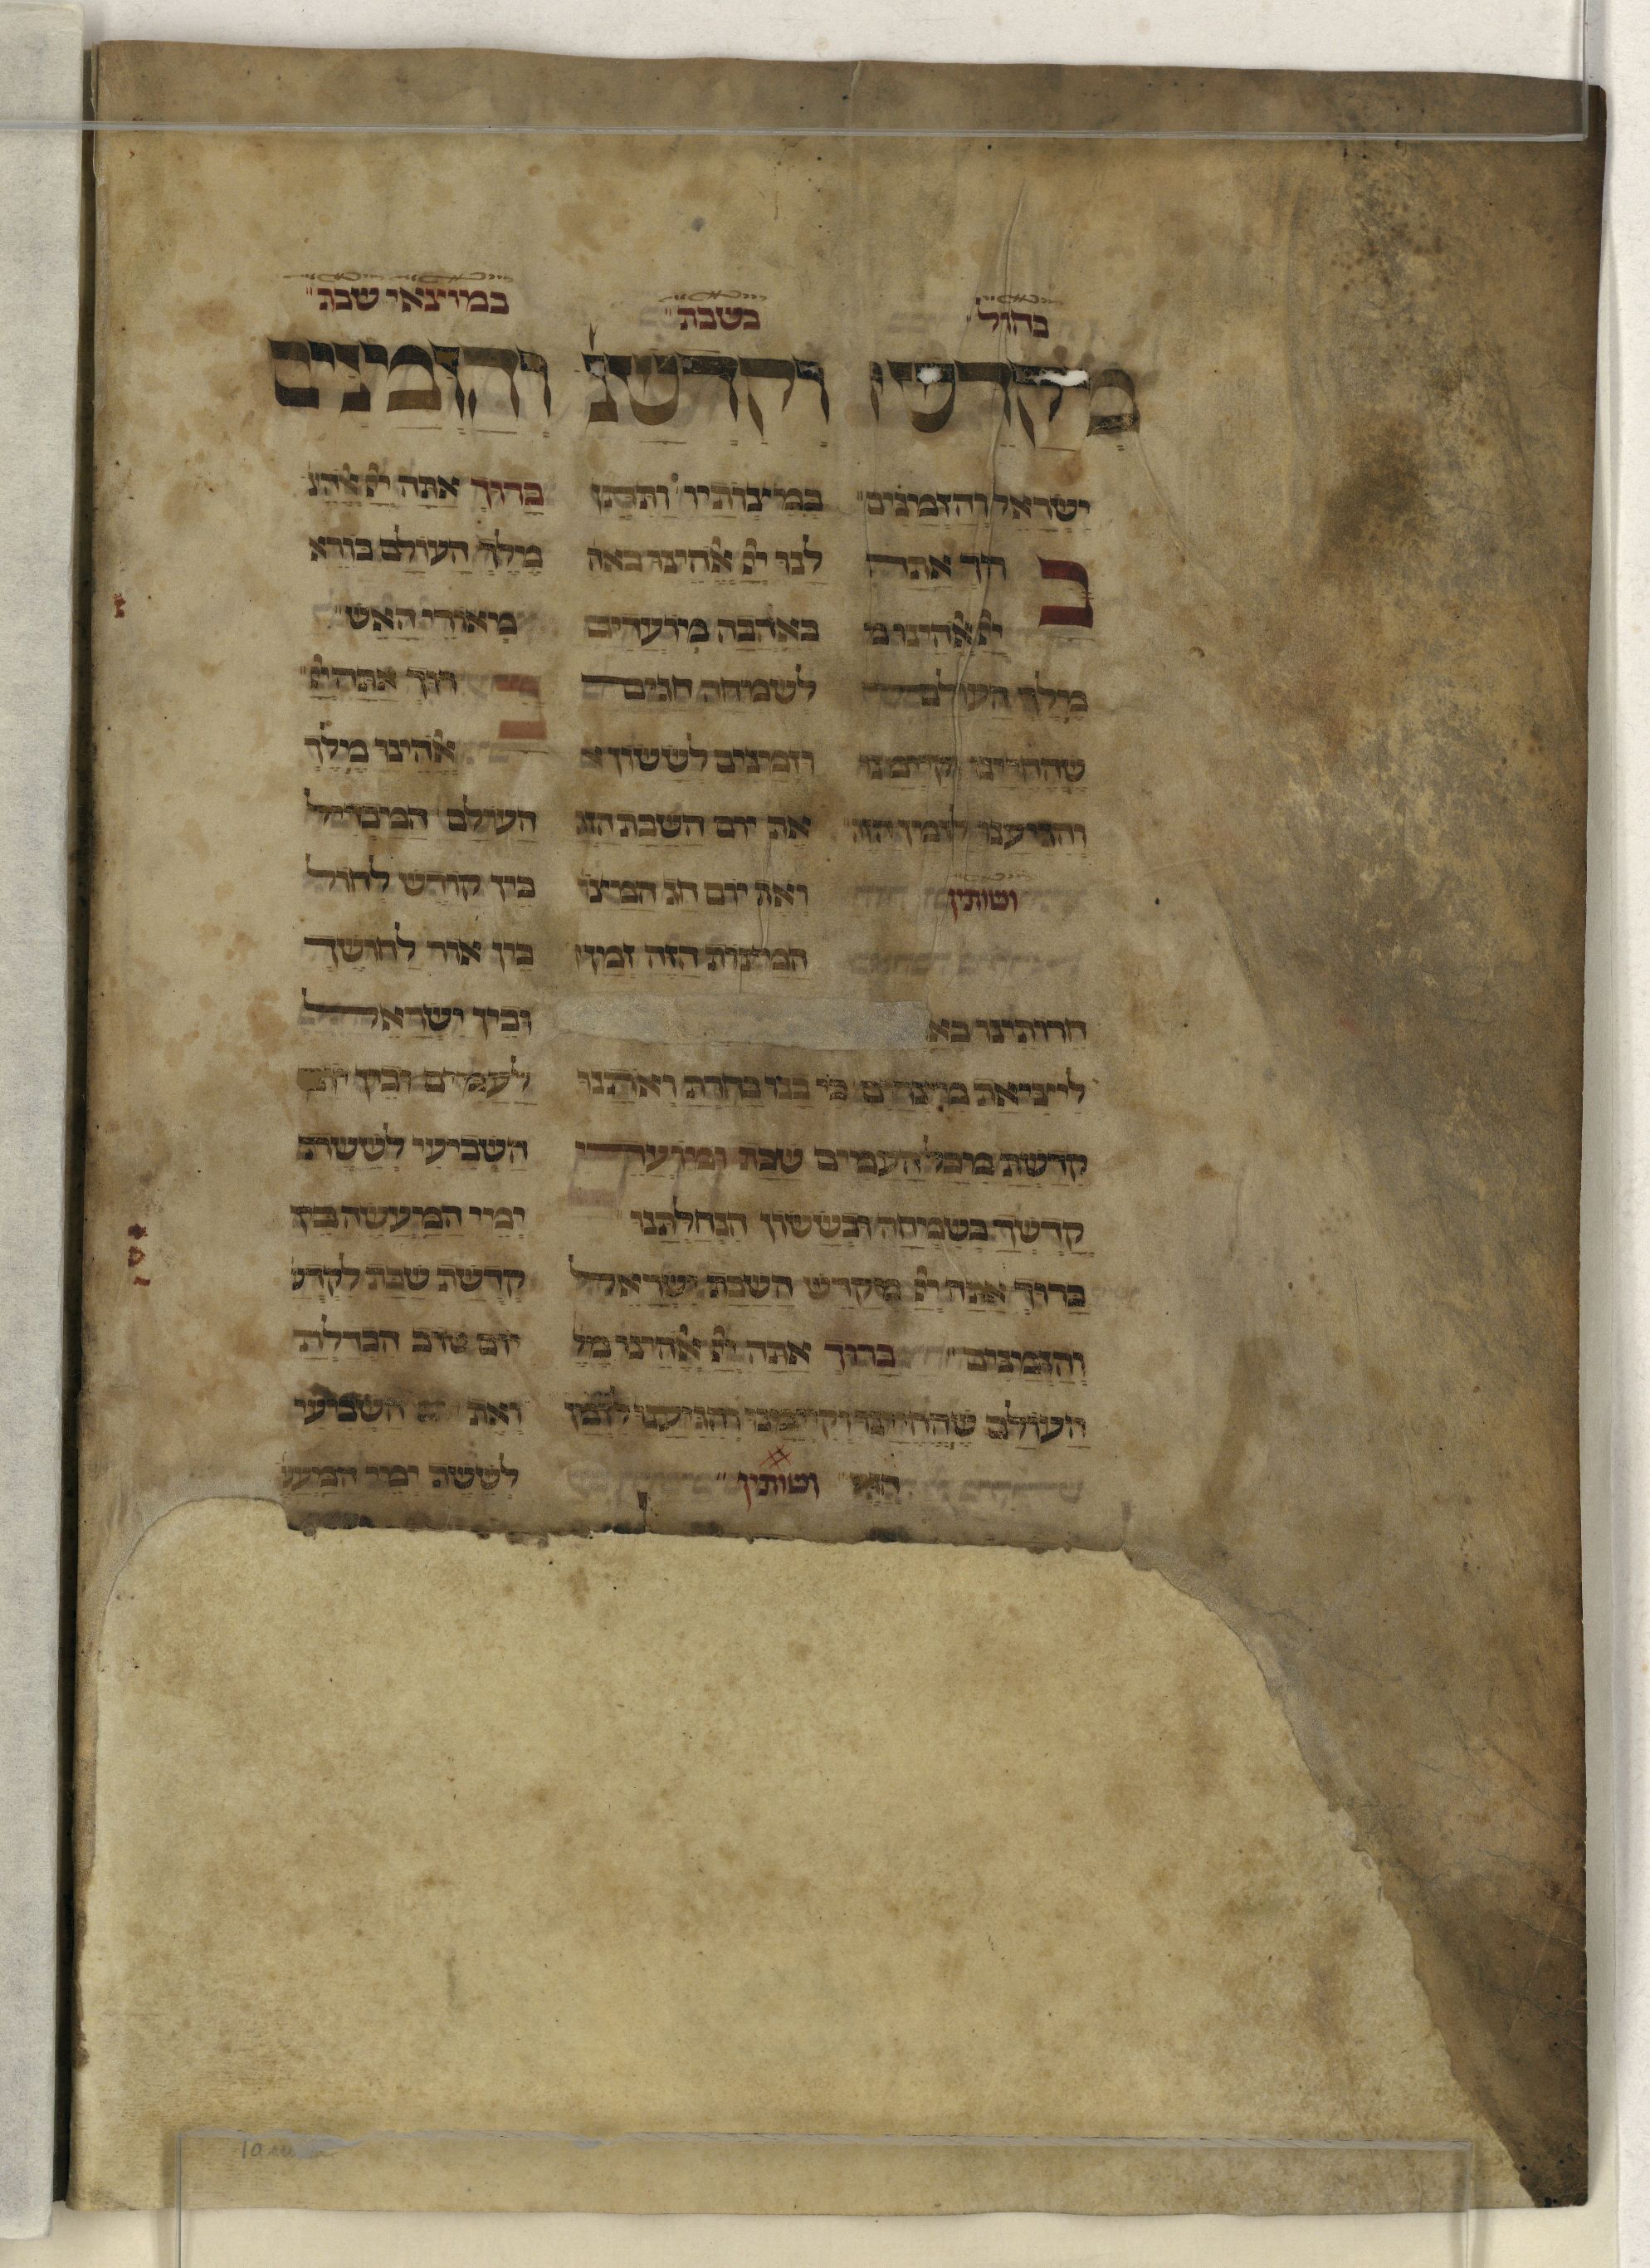 בחול
מקדש
ישראל והזמנים
ברוך אתה
יי אלהינו מ
מלך העולם
שהחיינו וקיימנו
והגיענו לזמן הזה
וטותין
בשבת
וקדשנו
במיצותיו ותתן
לנו יי אלהינו באה
באהבה מועדים
לשמחה חגים
וזמנים לששון א
את יום השבת הזה
ואת יום חג המצו
המיצות הזה זמן
חרותינו בא
ליציאת מצרים כי בנו בחרת ואותנו
קדשת מיכל העמים שבת ומועדי
קדשך בשמחה ובששון הנחלתנו
ברוך אתה יי מקדש השבת ישראל
והזמנים ברוך אתה יי אלהינו מל
העולם שהחיינו וקיימנו והגיענו לזמן
הזה וטותין
במוצאי שבת
והזמנים
ברוך אתה יי אלהנ
מלך העולם בורא
מאורי האש
ברוך אתה יי
אלהינו מלך
העולם המבדיל
בין קודש לחול
בין אור לחושך
ובין ישראל
לעמים ובין יום
השביעי לששת
ימיי המיעשה בין
קדשת שבת לקדש
יום טוב הבדלת
ואת יום השביעי
לששת ימי המעש